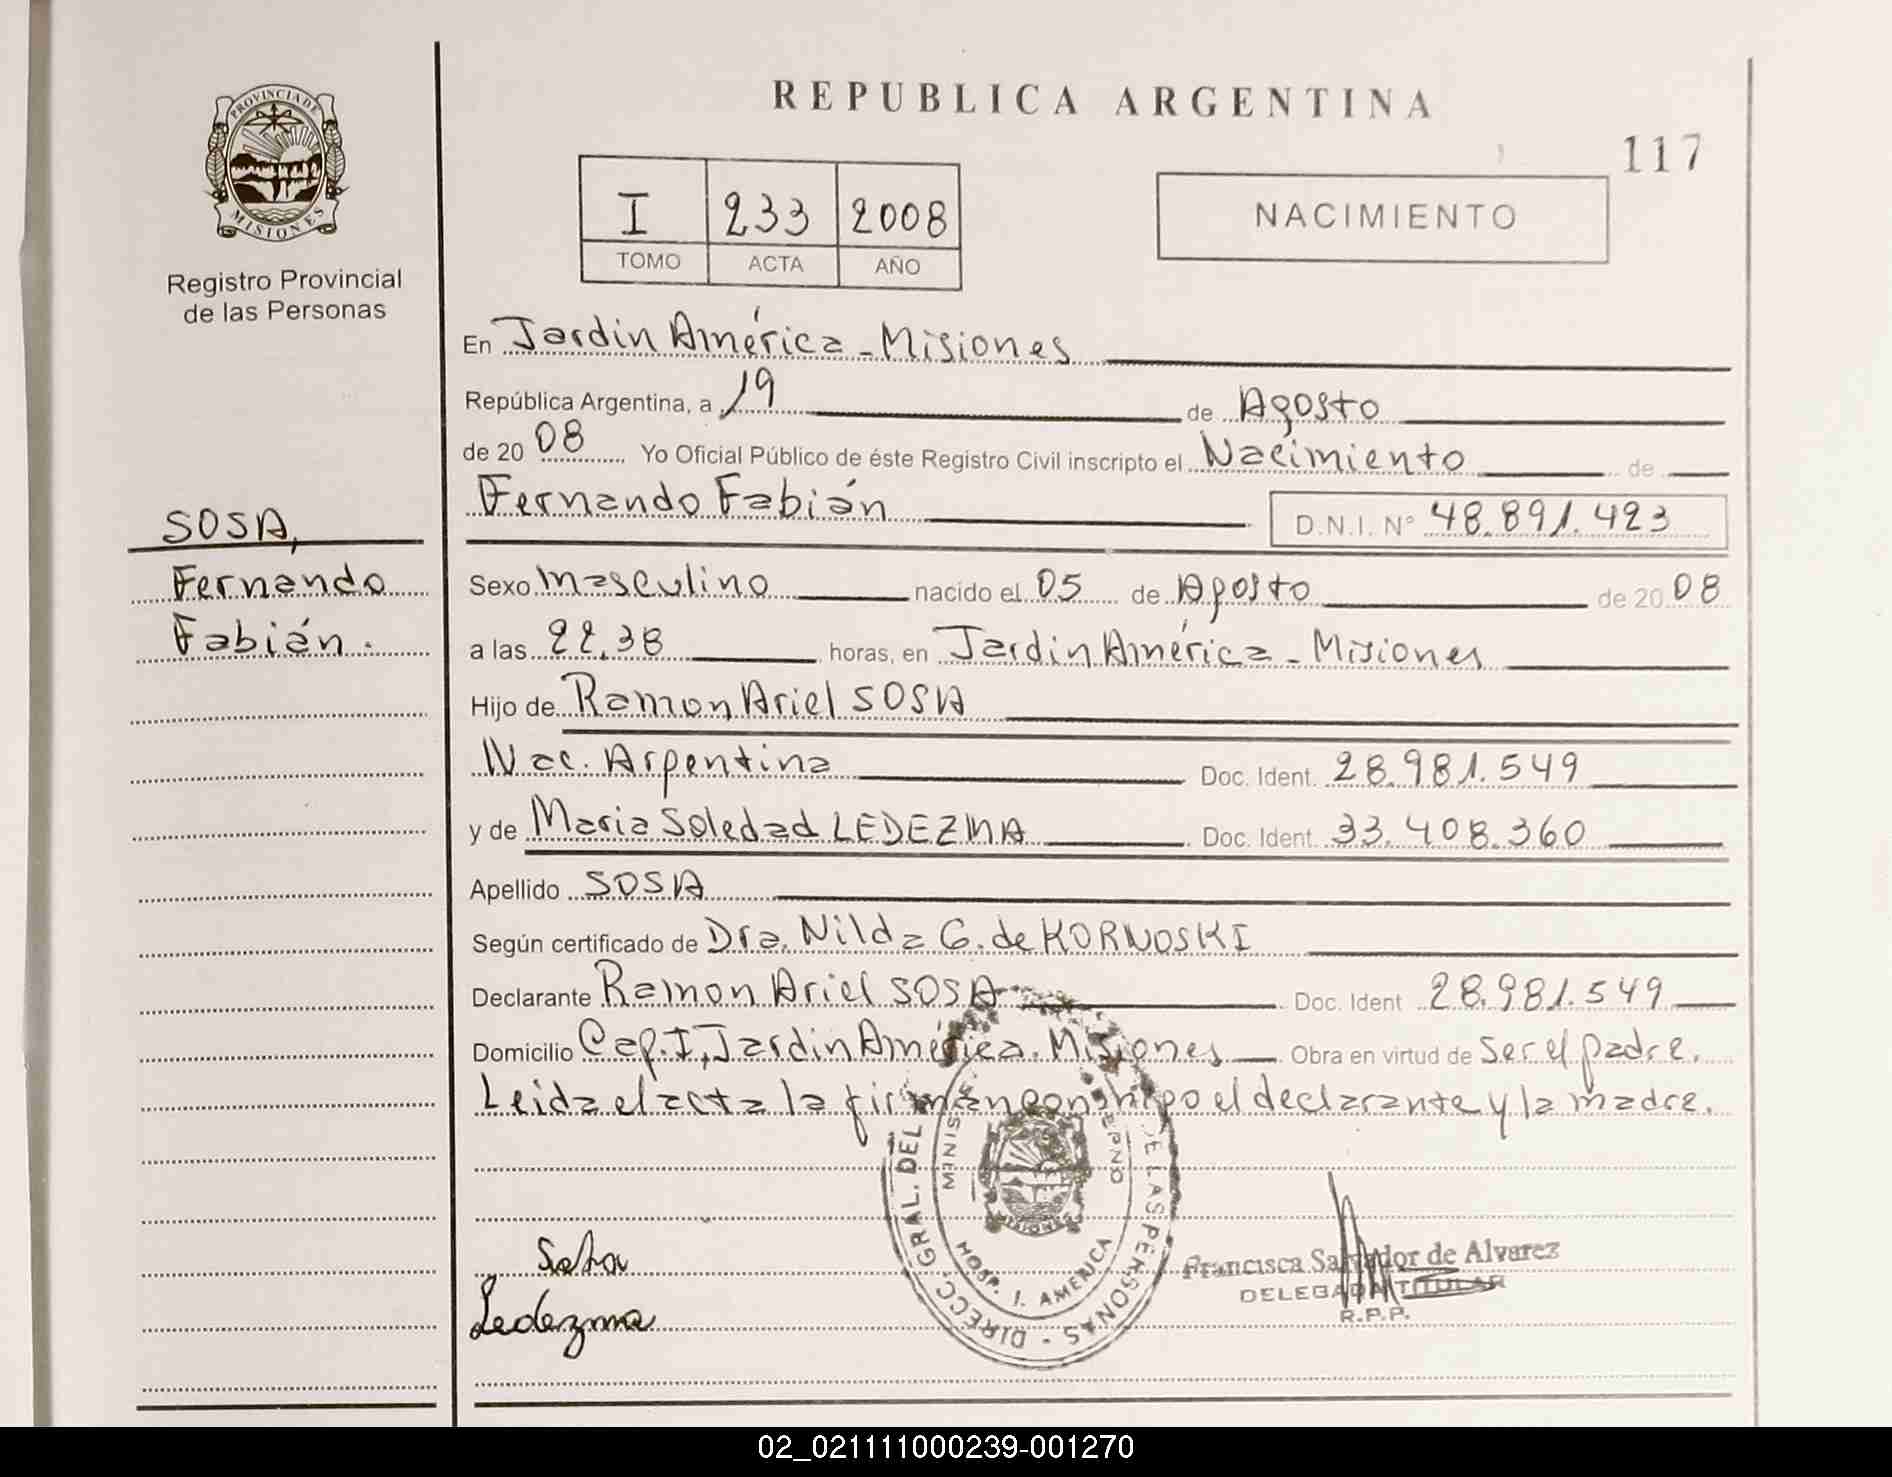 REPUBLICA ARGENTINA
117
PROVINCIA DE
MISIONES
Registro Provincial
de las Personas
I 233 2008
TOMO ACTA AÑO
NACIMIENTO
En Jardin América - Misiones
República Argentina, a 19 de Agosto
de 20 08 Yo Oficial Público de éste Registro Civil inscripto el Nacimiento de
Fernando Fabián D.N.I. N° 48.891.423
SOSA,
Fernando
Fabián.
Sexo Masculino nacido el 05 de Agosto de 20 08
a las 22.38 horas, en Jardin América - Misiones
Hijo de Ramon Ariel SOSA
Nac. Argentina Doc. Ident. 28.981.549
y de Maria Soledad LEDEZMA Doc. Ident. 33.408.360
Apellido SOSA
Según certificado de Dra. Nilda G. de KORNOSKI
Declarante Ramon Ariel SOSA Doc. Ident 28.981.549
Domicilio Cap. I, Jardin América. Misiones Obra en virtud de Ser el padre.
Leida el acta la firman conmigo el declarante y la madre.
DIRECC. GRAL. DEL DE LAS PERSONAS
HOSP. J. AMERICA
Ledezma
Francisca Salvador de Alvarez
DELEGADA TITULAR
R.P.P.
02_021111000239-001270